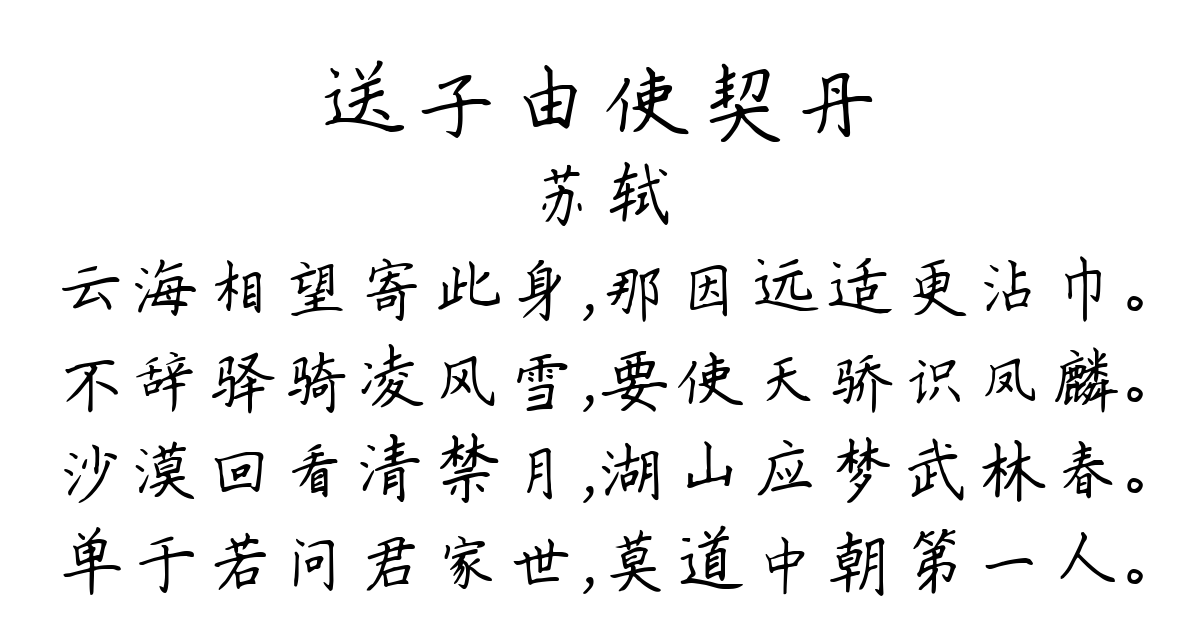 送子由使契丹
苏轼
云海相望寄此身,那因远适更沾巾。
不辞驿骑凌风雪,要使天骄识凤麟。
沙漠回看清禁月,湖山应梦武林春。
单于若问君家世,莫道中朝第一人。